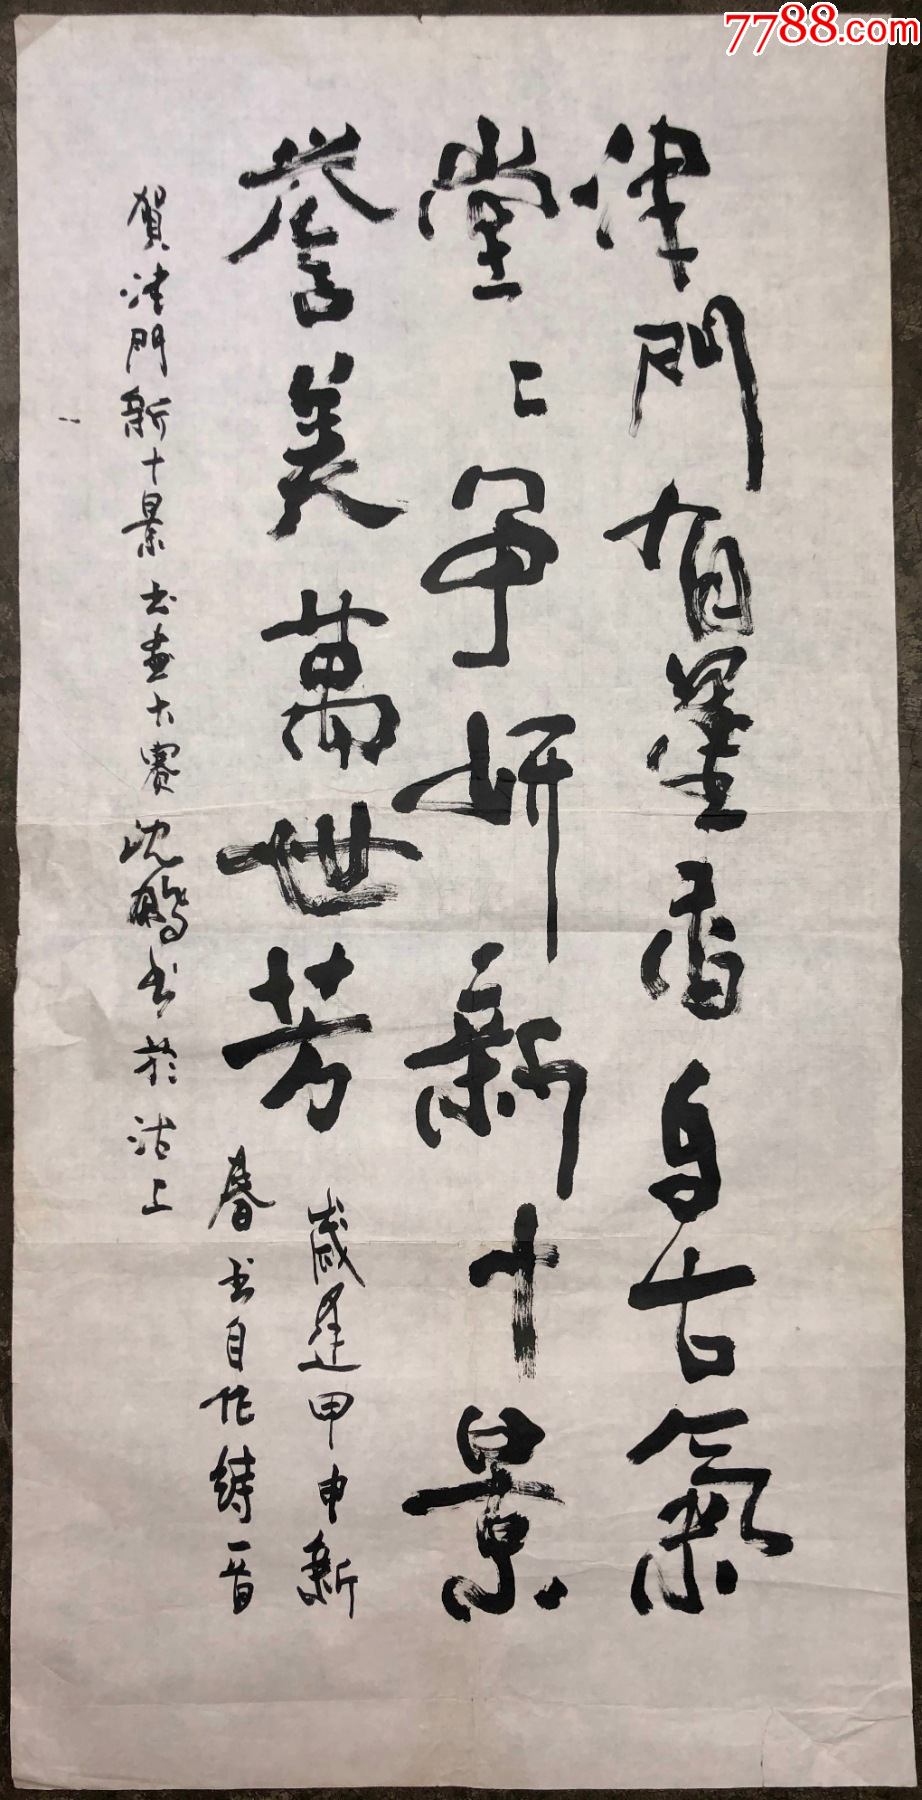 7788.com
津門有墨香自古氣
堂〻争妍新十景
譽美萬世芳
歲逢甲申新
春书自作詩一首
賀津門新十景书画大賽沈鵬书於沽上